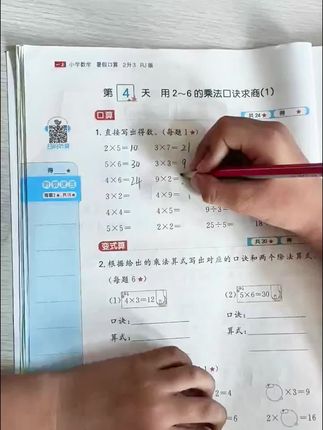 小学数学 暑假口算 2升3 RJ版
第4天 用2~6的乘法口诀求商(1)
口算
共24★ 得 ★
1.直接写出得数。(每题1★)
2×5=10 3×7=21
5×6=30 3×3=9
4×6=24 9×2=
3×2= 4×9=
4×4= 4×5= 9÷3=
5×5= 2×2= 25÷5= 18
扫码对答案
得 ★
变式算
共30★ 得 ★
2.根据给出的乘法算式写出对应的口诀和两个除法算式。
(每题6★)
(1) 4×3=12 (2) 5×6=30
口诀: 口诀:
算式: 算式:
2=4 ×3=9
=6 2× =16